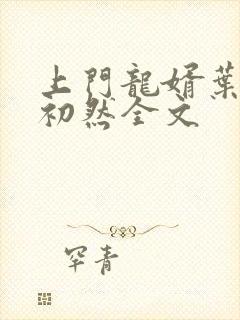 上門龍婿葉
初然全文
罕青